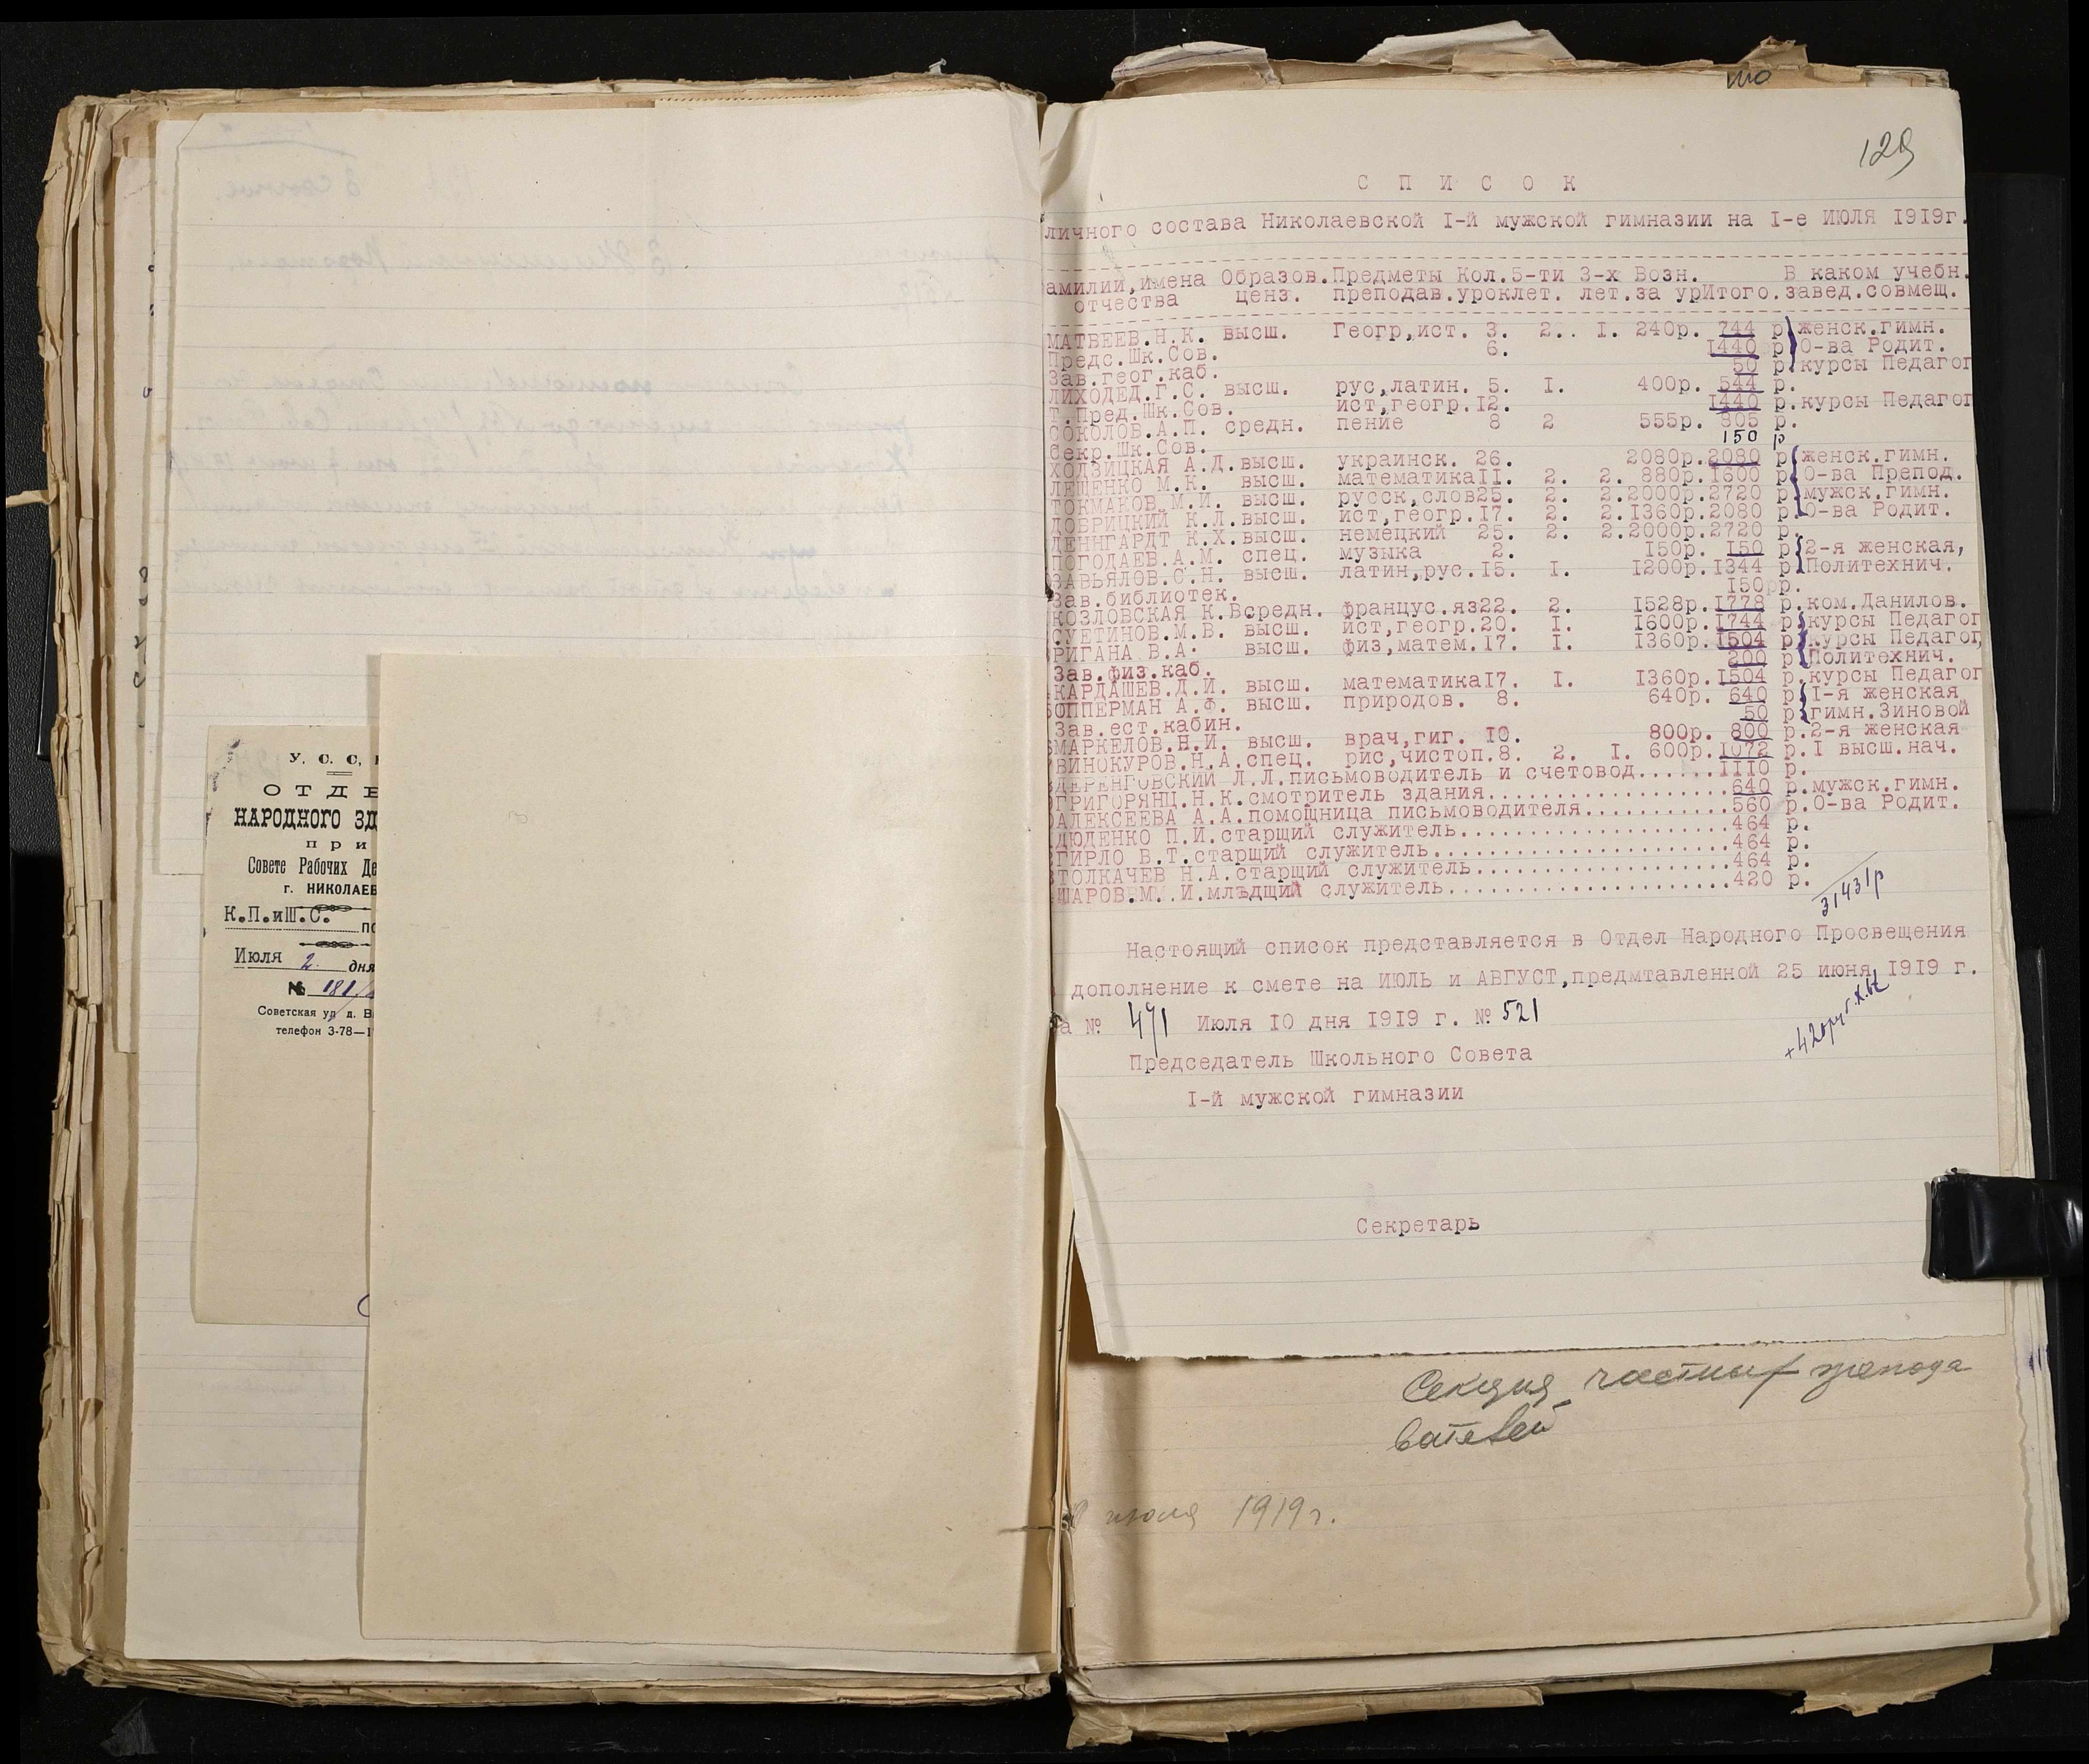 У. С. С,
ОТДЕ
НАРОДНОГО ЗД
при
Совете Рабочих Де
г. НИКОЛАЕВ
К.П.иШ.С.
Июля 2. дня
№ 181/
Советская ул д. В
телефон 3-78—1
129
С П И С О К
личного состава Николаевской I-й мужской гимназии на I-е ИЮЛЯ 1919г.
амилии,имена Образов.Предметы Кол.5-ти 3-х Возн. В каком учебн.
отчества ценз. преподав.уроклет. лет.за урИтого.завед.совмещ.
МАТВЕЕВ.Н.К. высш. Геогр,ист. 3. 2.. I. 240р. 744 р женск.гимн.
Предс.Шк.Сов. 6. I440 р О-ва Родит.
Зав.геог.каб. 50 р курсы Педагог
ЛИХОДЕД.Г.С. высш. рус,латин. 5. I. 400р. 544 р.
Т.Пред.Шк.Сов. ист,геогр.I2. I440 р.курсы Педагог
СОКОЛОВ.А.П. средн. пение 8 2 555р. 805 р.
Секр.Шк.Сов. 150 р
ХОДЗИЦКАЯ А.Д.высш. украинск. 26. 2080р.2080 р женск.гимн.
ЛЕЩЕНКО М.К. высш. математикаII. 2. 2. 880р.I600 р О-ва Препод.
ТОКМАКОВ.М.И. высш. русск,слов25. 2. 2.2000р.2720 р мужск.гимн.
ДОБРИЦКИЙ К.Л.высш. ист,геогр.I7. 2. 2.I360р.2080 р.О-ва Родит.
ДЕННГАРДТ К.Х.высш. немецкий 25. 2. 2.2000р.2720 р.
ПОГОДАЕВ.А.М. спец. музыка 2. I50р. I50 р 2-я женская,
ЗАВЬЯЛОВ.С.Н. высш. латин,рус.I5. I. I200р.I344 р Политехнич.
Зав.библиотек. I50рр.
КОЗЛОВСКАЯ К.Всредн. францус.яз22. 2. I528р.I778 р.ком.Данилов.
СУЕТИНОВ.М.В. высш. ист,геогр.20. I. I600р.I744 р курсы Педагог
РИГАНА В.А. высш. физ,матем.I7. I. I360р.I504 р курсы Педагог,
Зав.физ.каб. 200 р Политехнич.
КАРДАШЕВ.Д.И. высш. математикаI7. I. I360р.I504 р.курсы Педагог
ОППЕРМАН А.Ф. высш. природов. 8. 640р. 640 р I-я женская
Зав.ест.кабин. 50 р гимн.Зиновой
МАРКЕЛОВ.Н.И. высш. врач,гиг. I0. 800р. 800 р.2-я женская
ВИНОКУРОВ.Н.А.спец. рис,чистоп.8. 2. I. 600р.I072 р.I высш.нач.
ДЕРЕНГОВСКИЙ Л.Л.письмоводитель и счетовод......III0 р.
ГРИГОРЯНЦ.Н.К.смотритель здания...................640 р.мужск.гимн.
АЛЕКСЕЕВА А.А.помощница письмоводителя............560 р.О-ва Родит.
ДЮДЕНКО П.И.старщий служитель.....................464 р.
ГИРЛО В.Т.старщий служитель.......................464 р.
ТОЛКАЧЕВ Н.А.старщий служитель....................464 р.
ШАРОВ.М..И.младщий служитель......................420 р.
31431р
Настоящий список представляется в Отдел Народного Просвещения
дополнение к смете на ИЮЛЬ и АВГУСТ,предмтавленной 25 июня 1919 г.
а № 471 Июля 10 дня 1919 г. № 521
+420руб.
Председатель Школьного Совета
I-й мужской гимназии
Секретарь
Секция частных препода
вателей
июля 1919г.